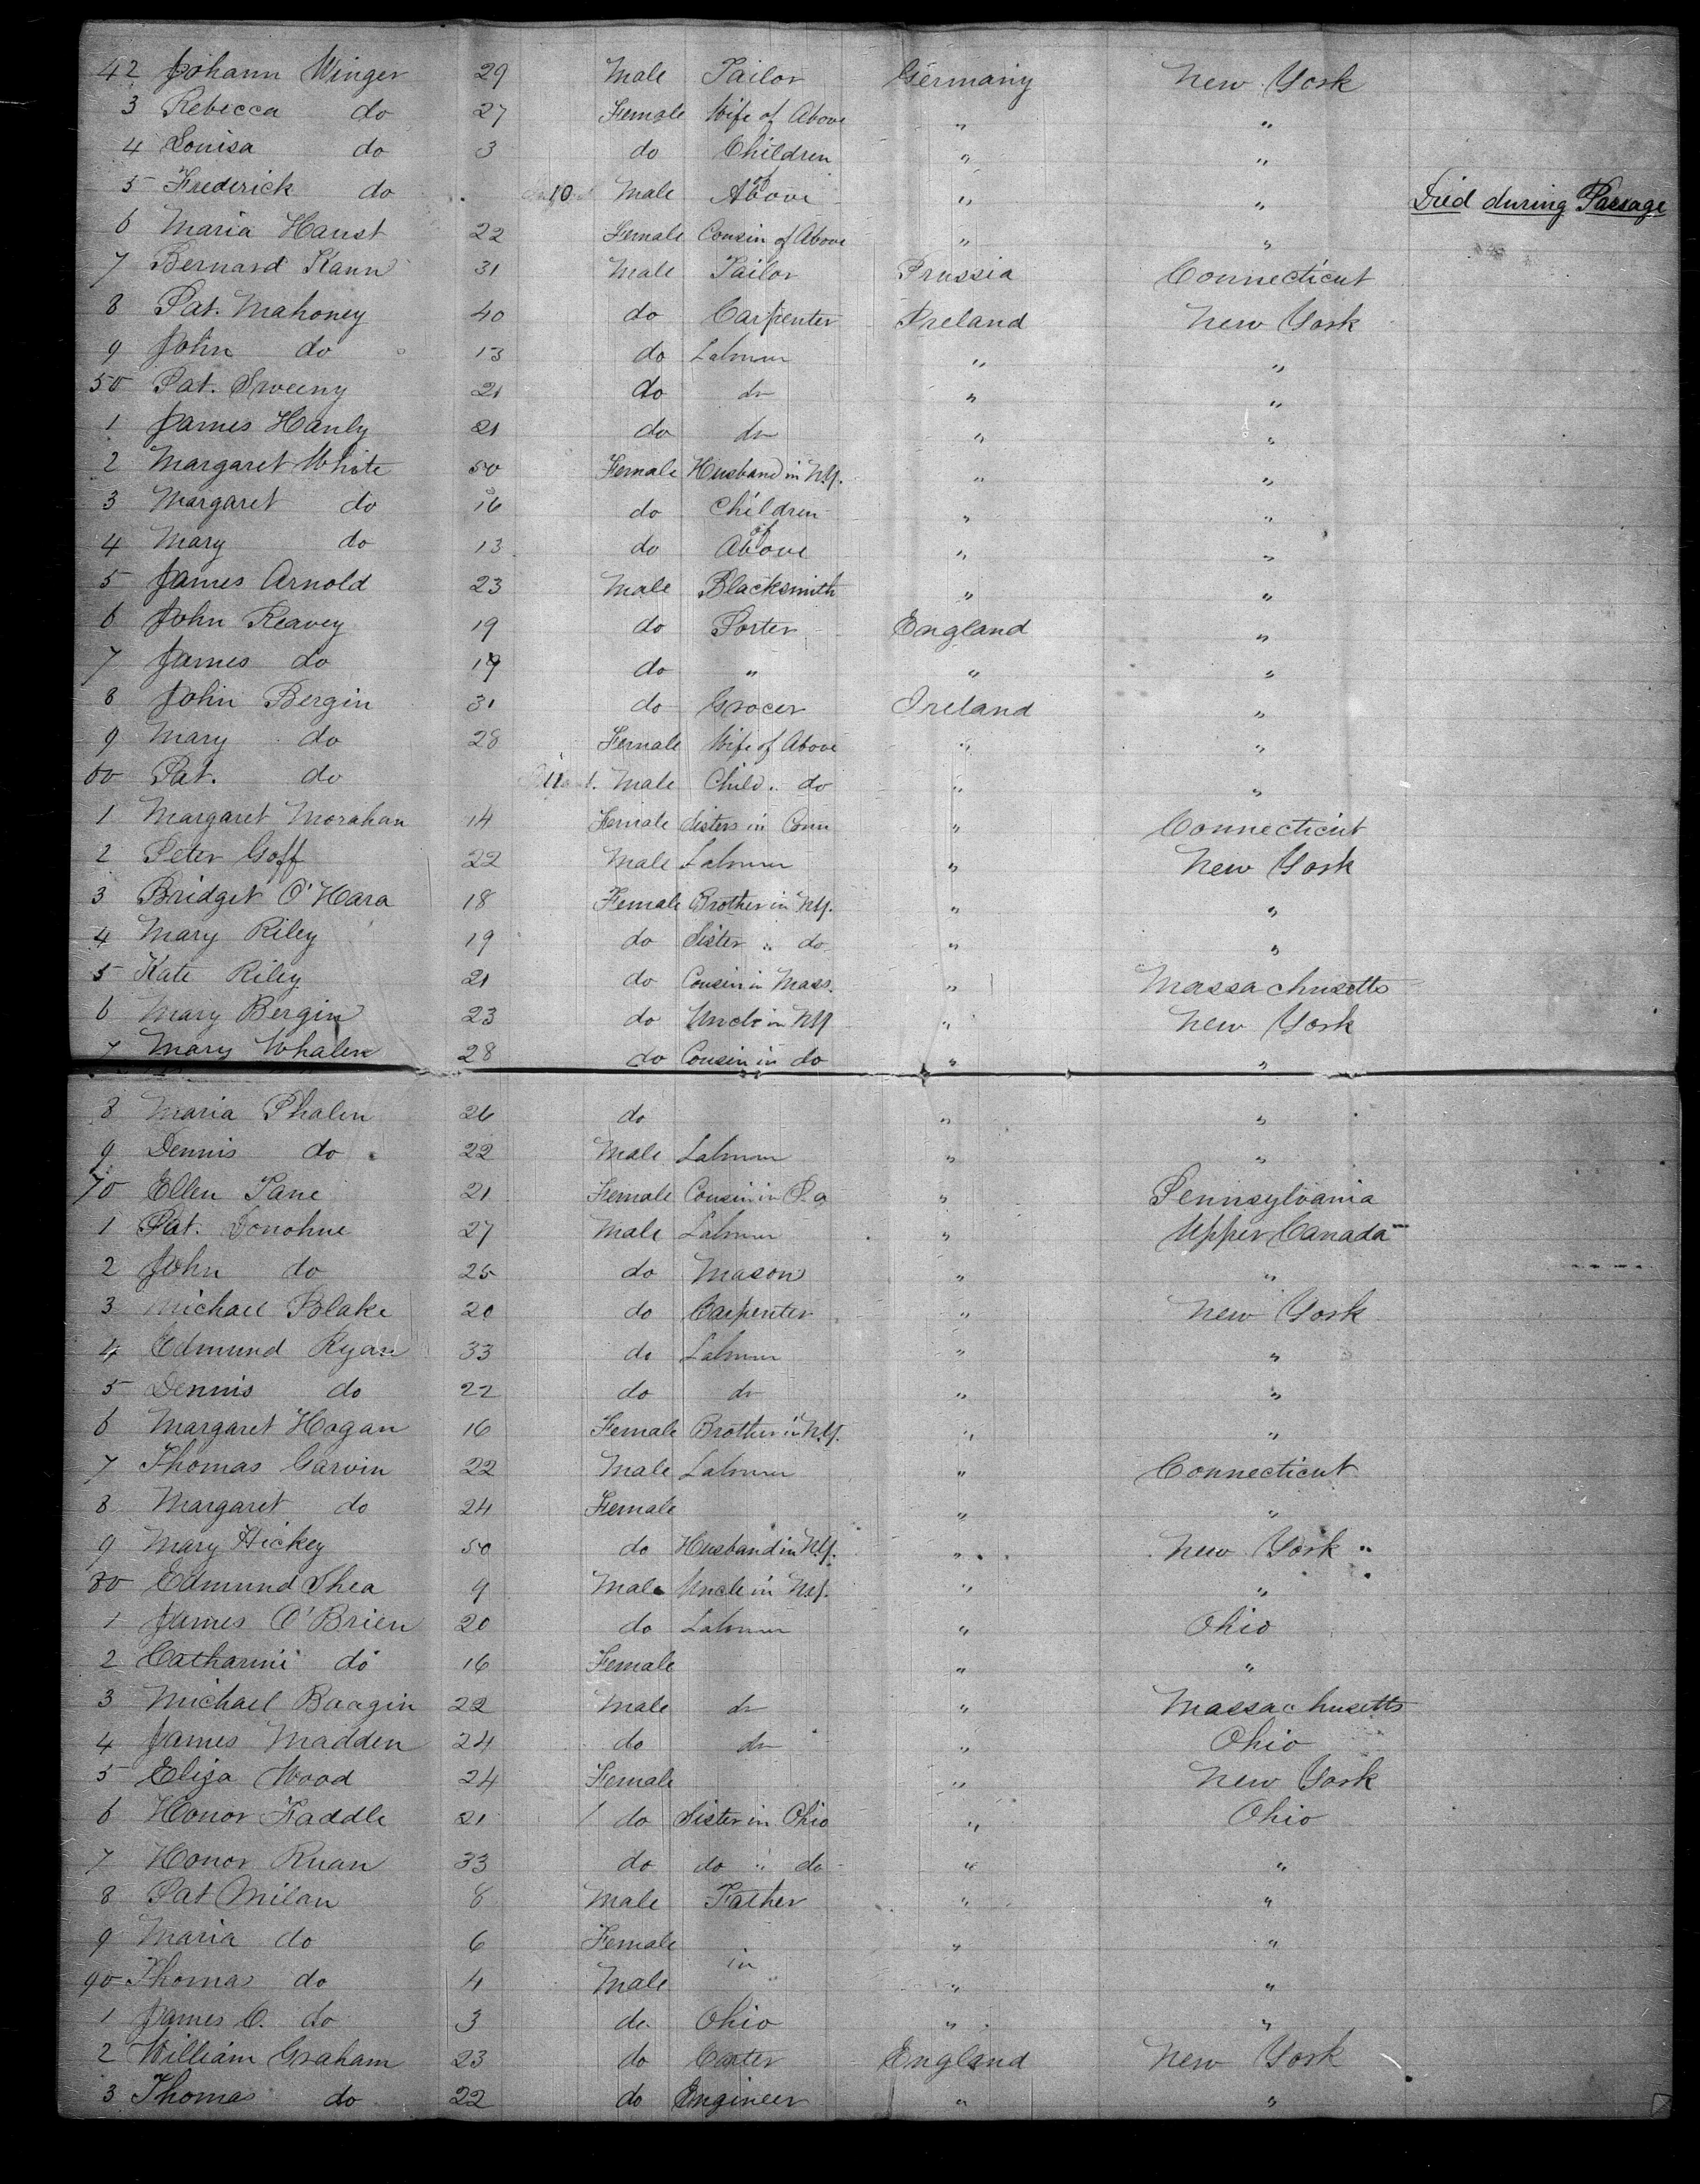 42 Johann Winger 29 Male Tailor Germany New York
3 Rebecca do 27 Female Wife of Above " "
4 Louisa do 3 do Children " "
5 Frederick do 10 Male of Above " " Died during Passage
6 Maria Haust 22 Female Cousin of Above " "
7 Bernard Kann 31 Male Tailor Prussia Connecticut
8 Pat. Mahoney 40 do Carpenter Ireland New York
9 John do 13 do Labourer " "
50 Pat. Sweeny 21 do do " "
1 James Hanly 21 do do " "
2 Margaret White 50 Female Husband in N.Y. " "
3 Margaret do 16 do Children " "
4 Mary do 13 do of Above " "
5 James Arnold 23 Male Blacksmith " "
6 John Reavey 19 do Porter England "
7 James do 19 do " " "
8 John Bergin 31 do Grocer Ireland "
9 Mary do 28 Female Wife of Above " "
60 Pat. do 11 Male Child " do " "
1 Margaret Morahan 14 Female Sisters in Conn " Connecticut
2 Peter Goff 22 Male Labourer " New York
3 Bridget O'Hara 18 Female Brother in N.Y. " "
4 Mary Riley 19 do Sister " do " "
5 Kate Riley 21 do Cousin in Mass. " Massachusetts
6 Mary Bergin 23 do Uncle in N.Y " New York
7 Mary Whalen 28 do Cousin in do " "
8 Maria Phalen 26 do " "
9 Dennis do 22 Male Labourer " "
70 Ellen Lane 21 Female Cousin in Pa " Pennsylvania
1 Pat. Donohue 27 Male Labourer " Upper Canada
2 John do 25 do Mason " "
3 Michael Blake 20 do Carpenter " New York
4 Edmund Ryan 33 do Labourer " "
5 Dennis do 22 do do " "
6 Margaret Hogan 16 Female Brother in N.Y. " "
7 Thomas Garvin 22 Male Labourer " Connecticut
8 Margaret do 24 Female " "
9 Mary Hickey 50 do Husband in N.Y. " New York
80 Edmund Shea 9 Male Uncle in N.Y. " "
1 James O'Brien 20 do Labourer " Ohio
2 Catharine do 16 Female " "
3 Michael Baagin 22 Male do " Massachusetts
4 James Madden 24 do do " Ohio
5 Eliza Wood 24 Female " New York
6 Honor Faddle 21 do Sister in Ohio " Ohio
7 Honor Ruan 33 do do " do " "
8 Pat Milan 8 Male Father " "
9 Maria do 6 Female " "
90 Thomas do 4 Male in " "
1 James C. do 3 do Ohio " "
2 William Graham 23 do Carter England New York
3 Thomas do 22 do Engineer " "